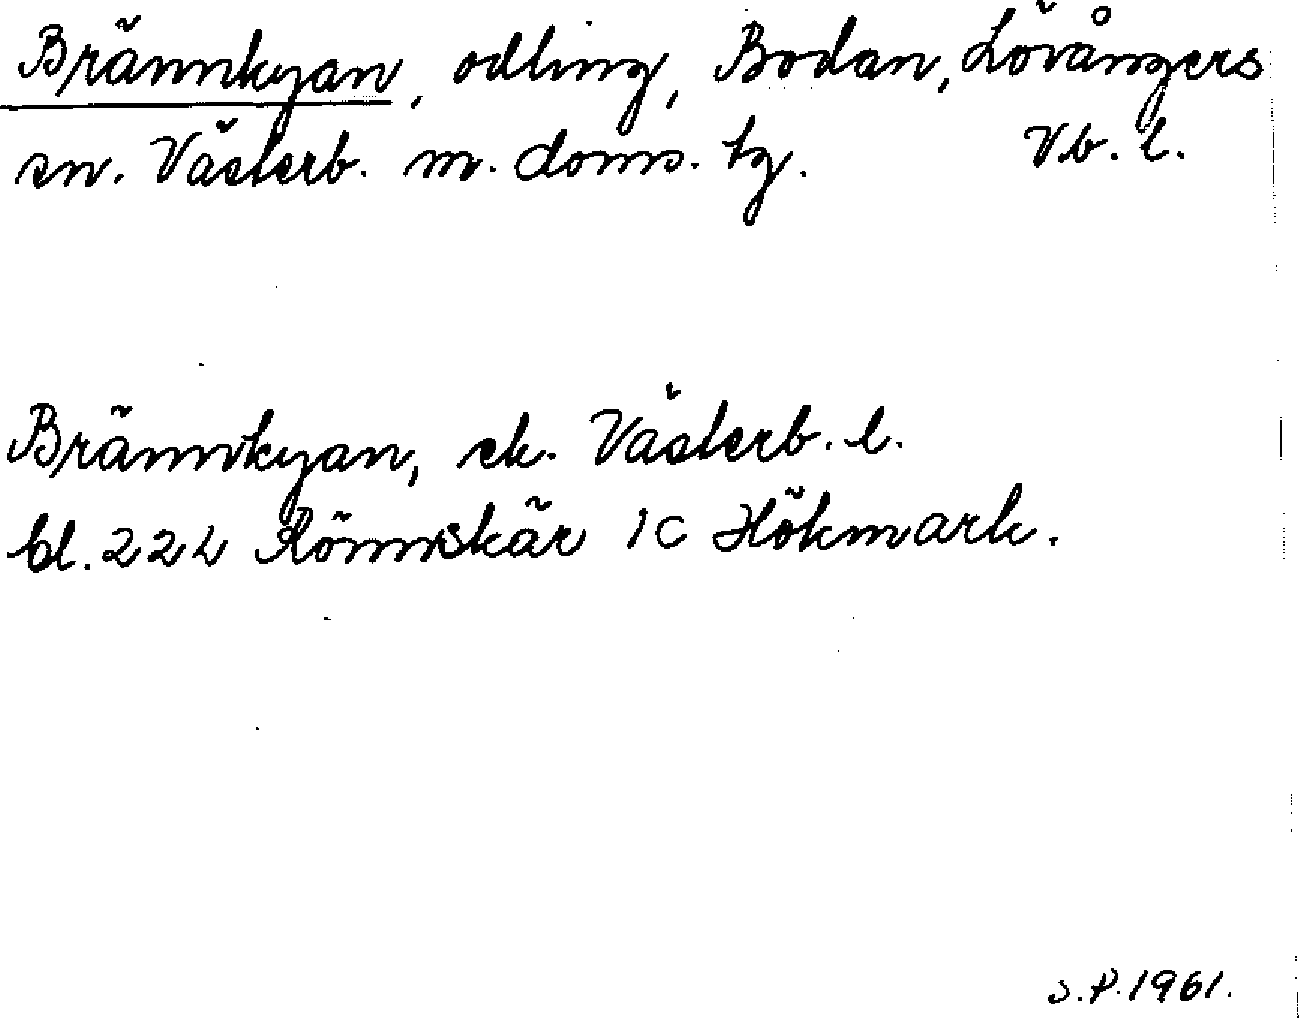 Brännkyan, odling, Bodan, Lövångers
sn. Västerb. m. doms. tg. Vb. l.
Brännkyan, ek. Västerb. l.
bl. 222 Rönnskär 1c Hökmark.
S.P. 1961.